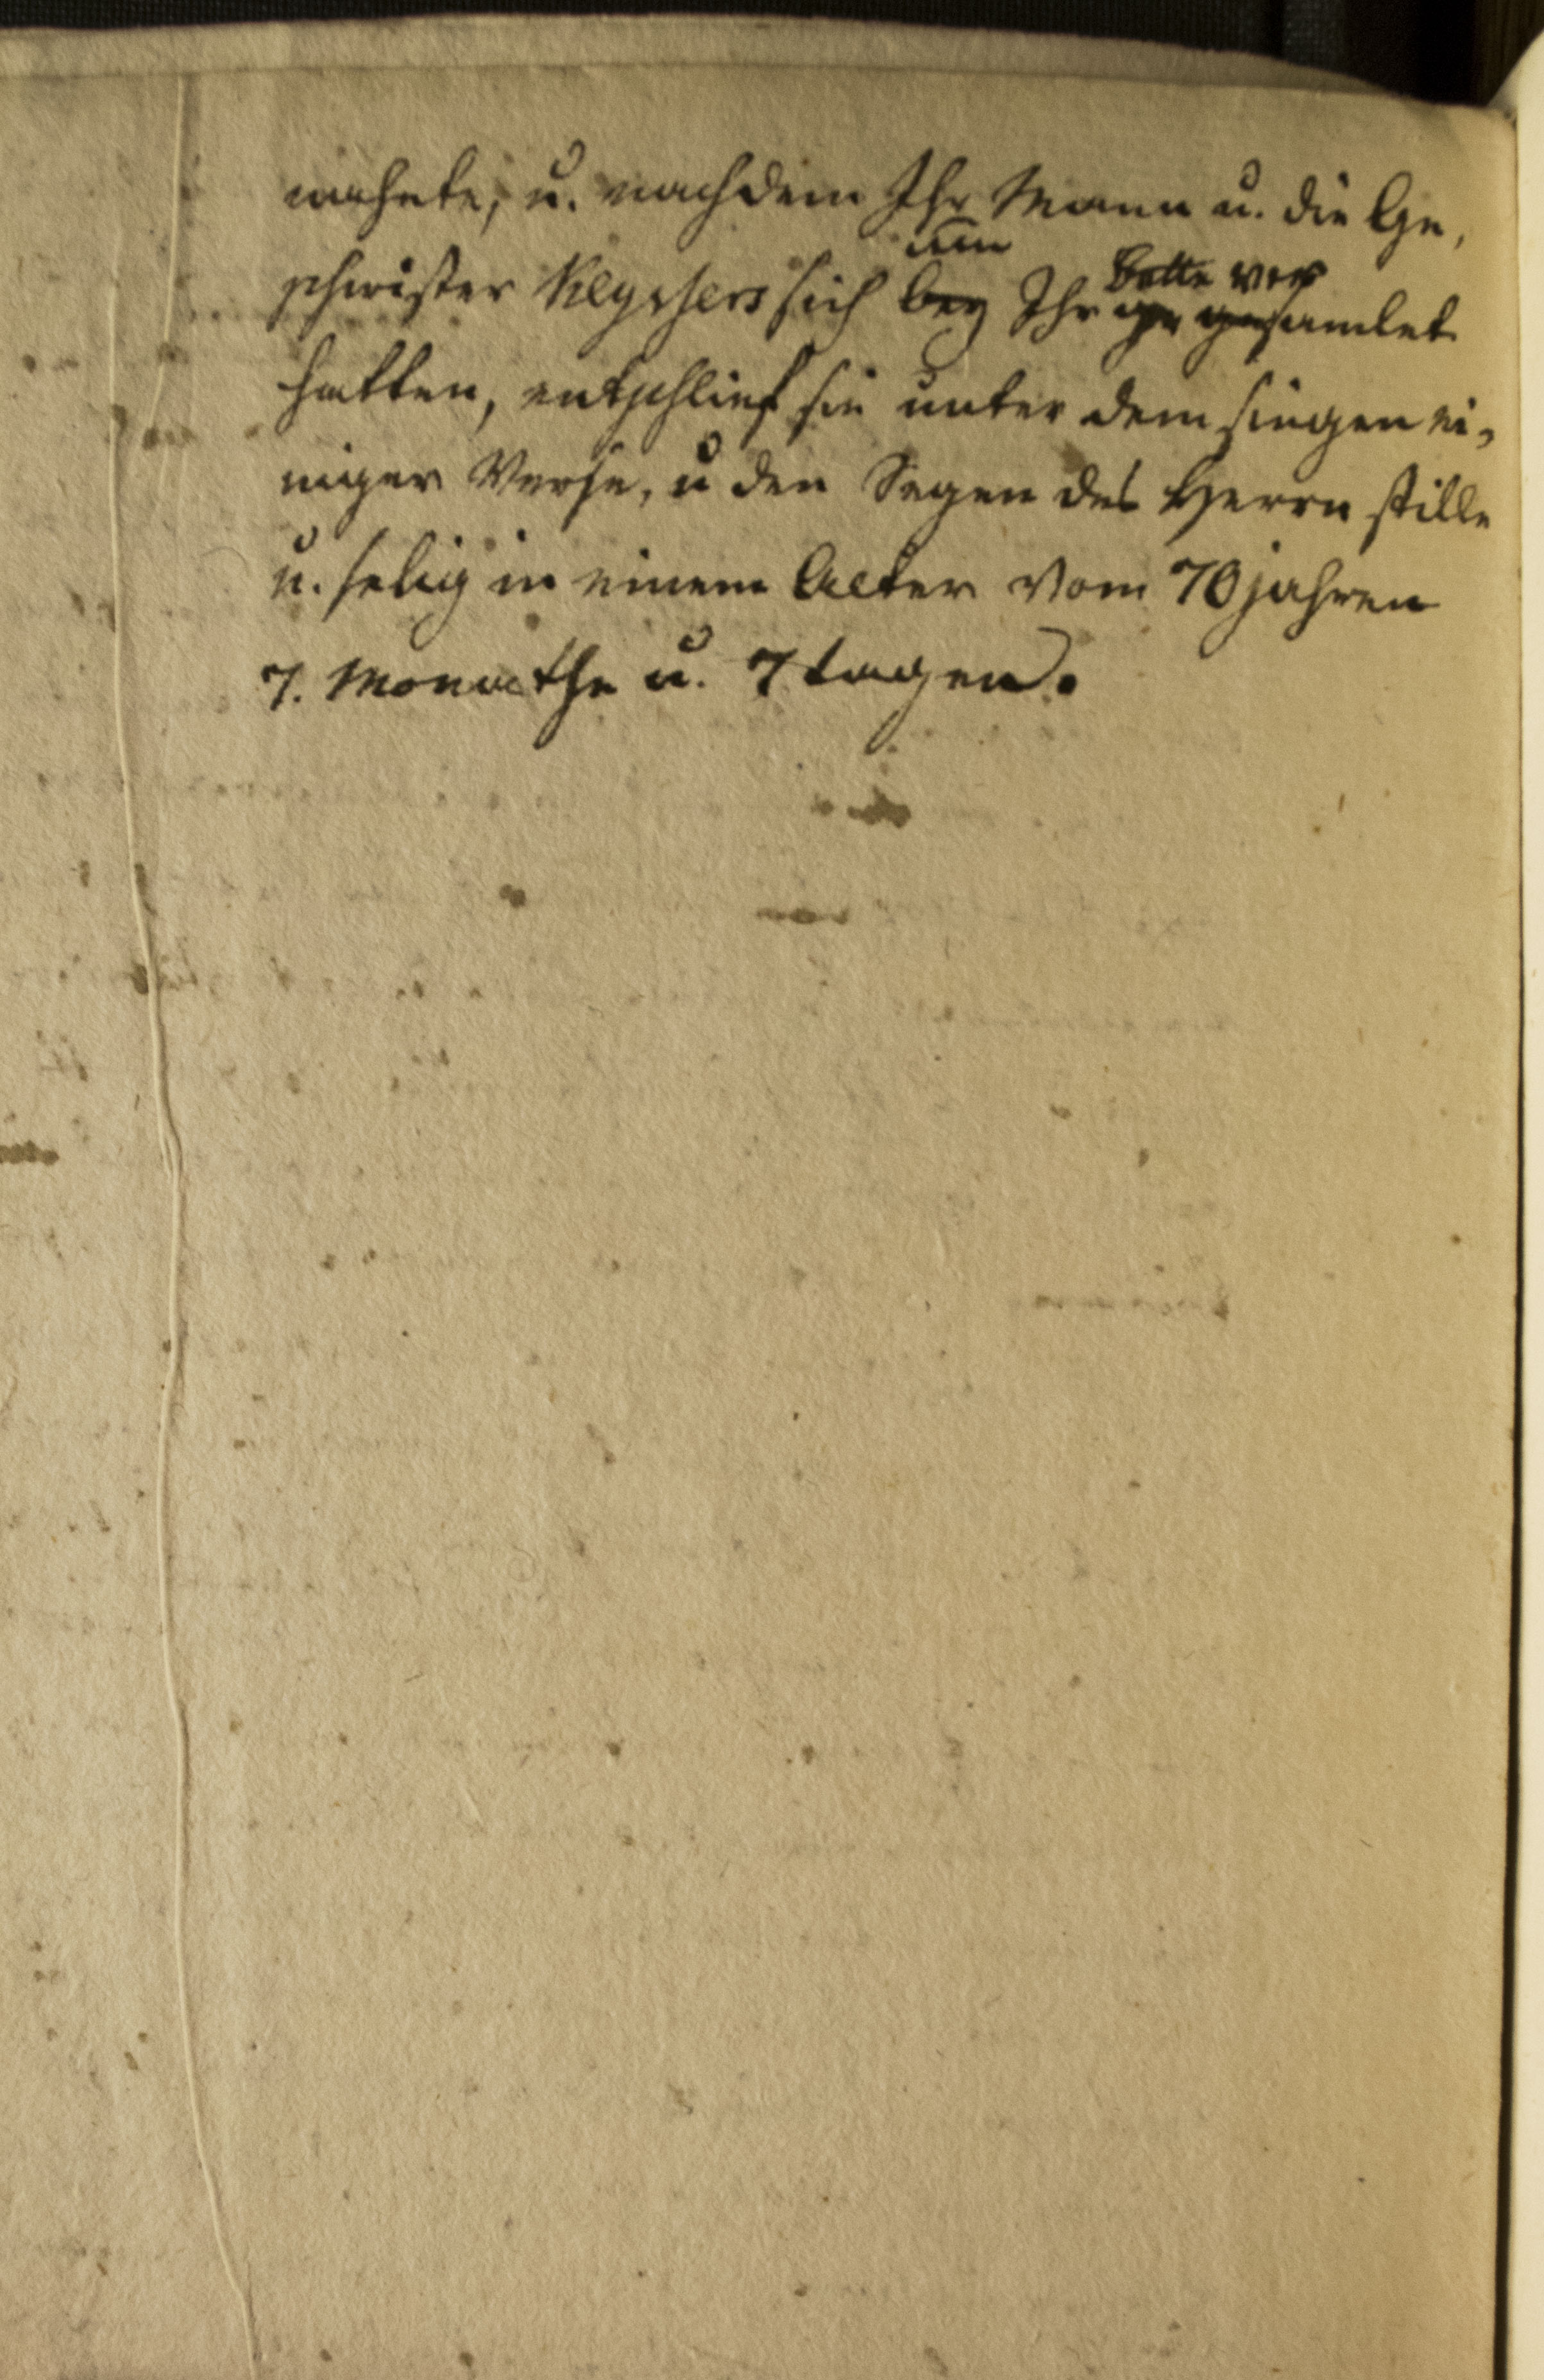 mahnte, u. nachdem Ihr Mann u. die Ge,
um Bette ver
schwister sich bey Ihr ge gesamlet
hatten, entschlief sie unter dem singen ei,
niger Verse, u den Segen des Herrn stille
u. selig in einem Alter vom 70 jahren
7. Monathe u. 7 tagen.